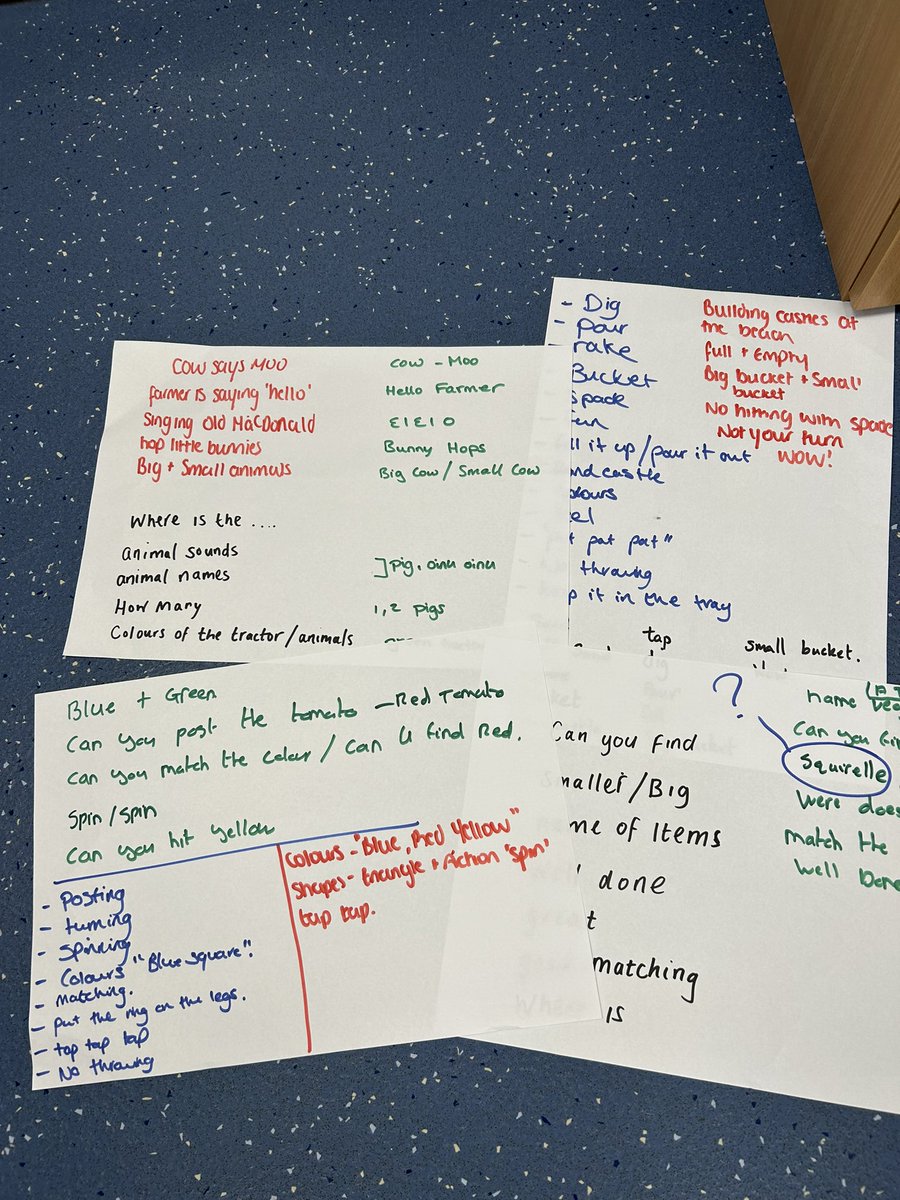 Cow says MOO
farmer is saying 'hello'
Singing Old MacDonald
hop little bunnies
Big + Small animals
Cow - Moo
Hello Farmer
E I E I O
Bunny Hops
Big Cow / Small Cow
Where is the ....
animal sounds
animal names
How many
Colours of the tractor/animals
] Pig, oink oink
1, 2 pigs
- Dig
- Pour
rake
Bucket
Spade
it up / pour it out
pat pat"
throwing
it in the tray
Building castles at
the beach
full + Empty
Big bucket + Small
bucket
No hitting with spade
Not your turn
WOW!
tap
small bucket.
Blue + Green
Can you post the tomato - Red Tomato
Can you match the colour / Can u find Red.
Spin / Spin
Can you hit yellow
- Posting
- turning
- Spinning
- Colours "Blue square".
- matching.
- put the ring on the legs.
- tap tap tap
- No throwing
Colours - "Blue, Red Yellow"
Shapes - triangle + Action 'spin'
tap tap.
Can you find
smaller / Big
of Items
done
matching
is
?
name
Can you
Squirelle
Were does
match the
well Done